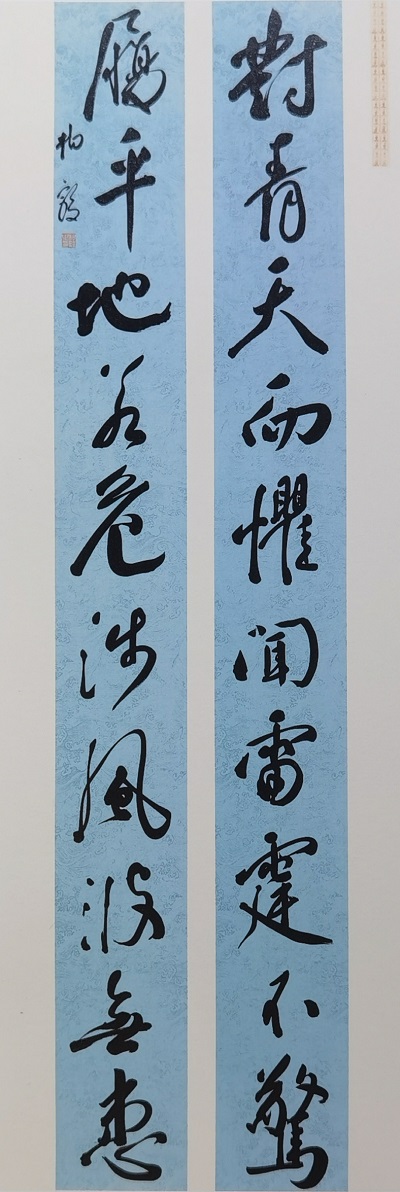 對青天而懼聞雷霆不驚
履平地若危涉風波無患
柏